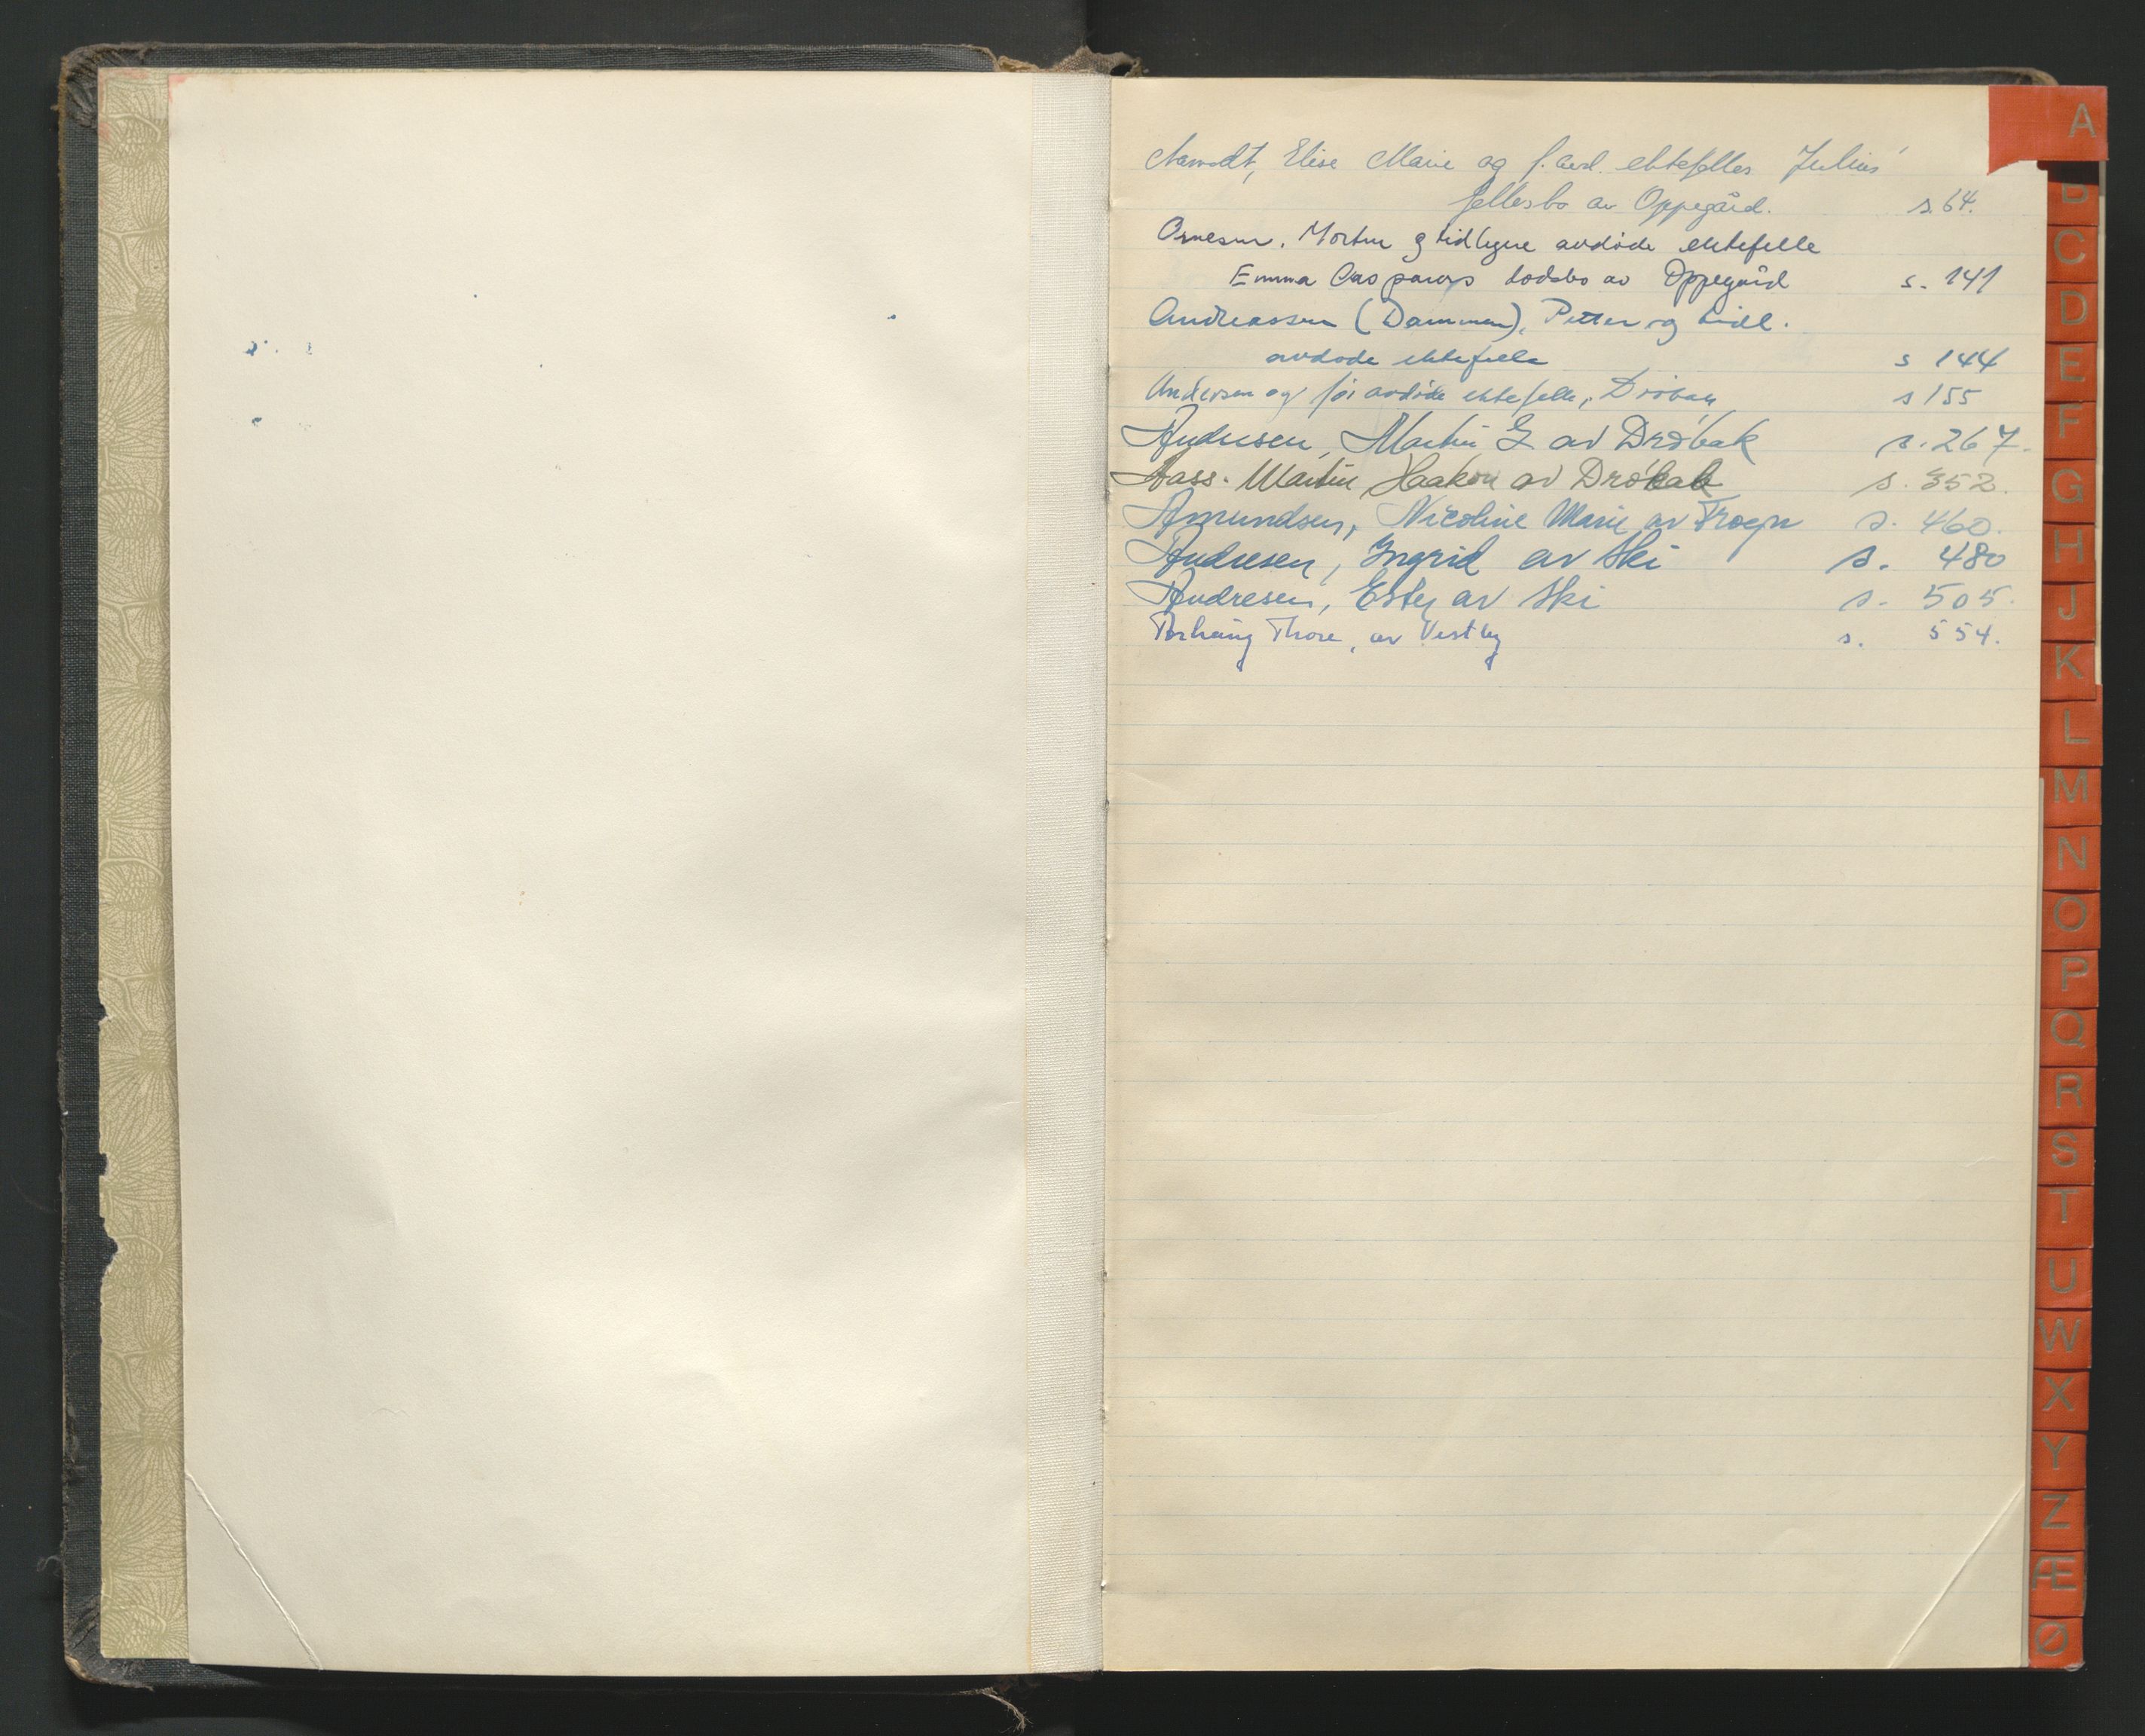 Aamodt, Elise Marie og f. avd. ektefelles Julius'
fellesbo av Oppegård. s. 64.
Arnesen, Morten og tidligere avdøde ektefelle
Emma Caspara's dødsbo av Oppegård s. 141
Andreassen (Dammen), Petter og tidl.
avdøde ektefelle s 144
Andersen og før avdøde ektefelle, Drøbak s 155
Andresen, Martin G av Drøbak s. 267.
Aass. Martin Haakon av Drøbak s. 352.
Amundsen, Nicoline Marie av Frogn s. 460.
Andresen, Ingrid av Ski s. 480
Andresen, Ester av Ski s. 505.
Thore, av Vestby s. 554.
A
B
C
D
E
F
G
H
J
K
L
M
N
O
P
Q
R
S
T
U
W
X
Y
Z
Æ
Ø